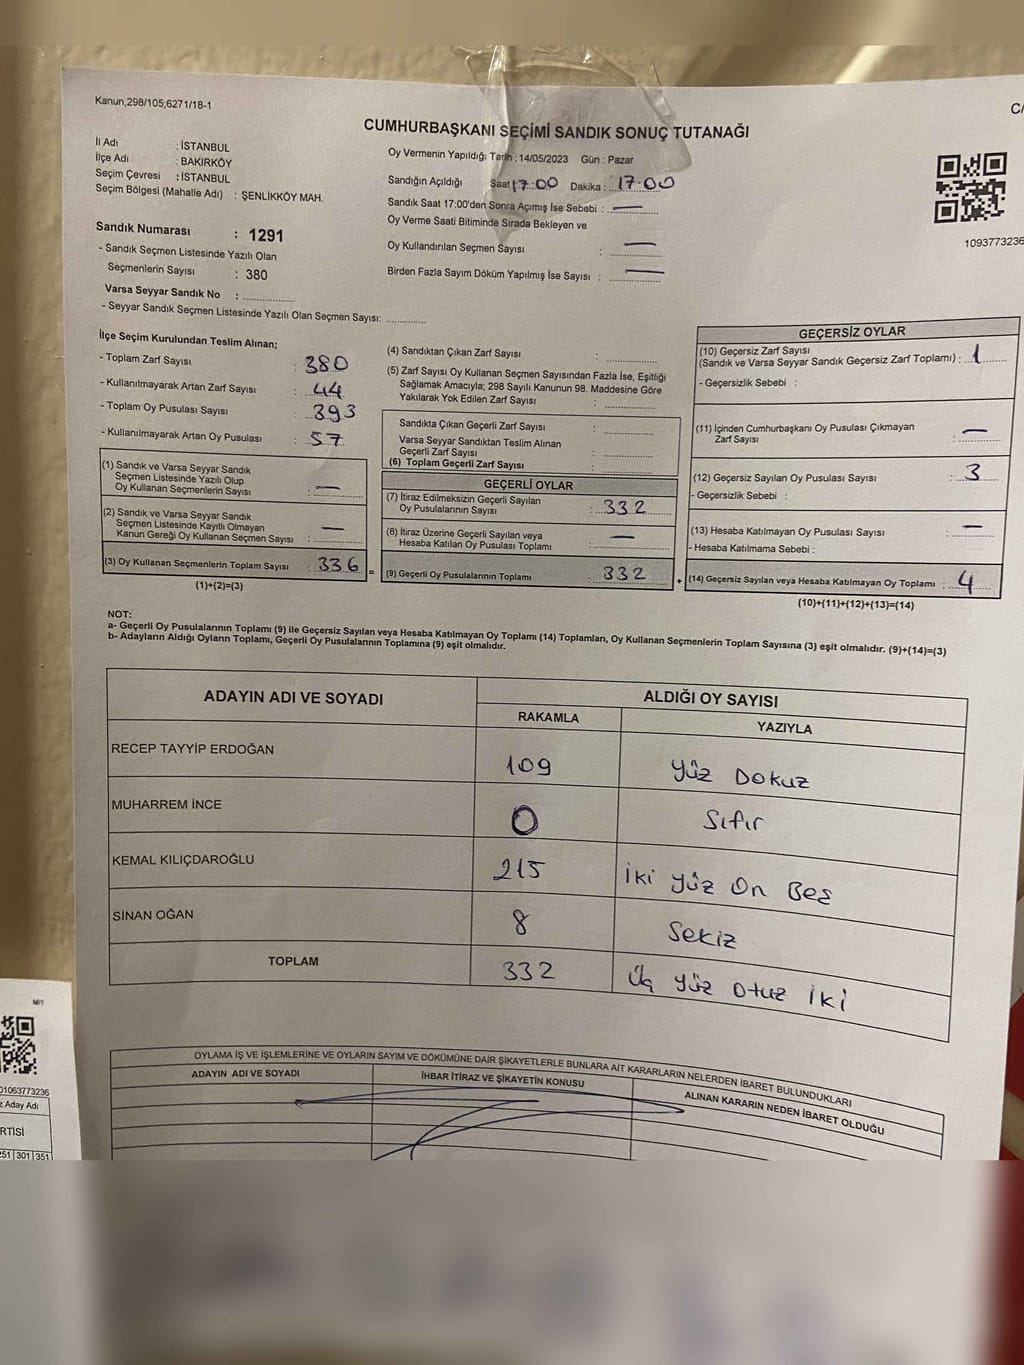 Kanun,298/105;6271/18-1
C/
CUMHURBAŞKANI SEÇİMİ SANDIK SONUÇ TUTANAĞI
İl Adı : İSTANBUL
İlçe Adı : BAKIRKÖY
Seçim Çevresi : İSTANBUL
Seçim Bölgesi (Mahalle Adı) : ŞENLİKKÖY MAH.
Sandık Numarası : 1291
- Sandık Seçmen Listesinde Yazılı Olan
Seçmenlerin Sayısı : 380
Varsa Seyyar Sandık No : ..............
- Seyyar Sandık Seçmen Listesinde Yazılı Olan Seçmen Sayısı: ............
Oy Vermenin Yapıldığı Tarih : 14/05/2023 Gün : Pazar
Sandığın Açıldığı Saat 17:00 Dakika : 17.00
Sandık Saat 17:00'den Sonra Açımış İse Sebebi : —
Oy Verme Saati Bitiminde Sırada Bekleyen ve
Oy Kullandırılan Seçmen Sayısı : —
Birden Fazla Sayım Döküm Yapılmış İse Sayısı : —
1093773236
İlçe Seçim Kurulundan Teslim Alınan;
- Toplam Zarf Sayısı : 380
- Kullanılmayarak Artan Zarf Sayısı : 44
- Toplam Oy Pusulası Sayısı : 393
- Kullanılmayarak Artan Oy Pusulası : 57
(1) Sandık ve Varsa Seyyar Sandık
Seçmen Listesinde Yazılı Olup
Oy Kullanan Seçmenlerin Sayısı : —
(2) Sandık ve Varsa Seyyar Sandık
Seçmen Listesinde Kayıtlı Olmayan
Kanun Gereği Oy Kullanan Seçmen Sayısı : —
(3) Oy Kullanan Seçmenlerin Toplam Sayısı : 336 =
(1)+(2)=(3)
(4) Sandıktan Çıkan Zarf Sayısı : ..............
(5) Zarf Sayısı Oy Kullanan Seçmen Sayısından Fazla İse, Eşitliği
Sağlamak Amacıyla; 298 Sayılı Kanunun 98. Maddesine Göre
Yakılarak Yok Edilen Zarf Sayısı : ..............
Sandıkta Çıkan Geçerli Zarf Sayısı : ..............
Varsa Seyyar Sandıktan Teslim Alınan
Geçerli Zarf Sayısı : ..............
(6) Toplam Geçerli Zarf Sayısı : ..............
GEÇERLİ OYLAR
(7) İtiraz Edilmeksizin Geçerli Sayılan
Oy Pusulalarının Sayısı : 332
(8) İtiraz Üzerine Geçerli Sayılan veya
Hesaba Katılan Oy Pusulası Toplamı : —
(9) Geçerli Oy Pusulalarının Toplamı : 332 +
GEÇERSİZ OYLAR
(10) Geçersiz Zarf Sayısı
(Sandık ve Varsa Seyyar Sandık Geçersiz Zarf Toplamı) : 1
- Geçersizlik Sebebi :
(11) İçinden Cumhurbaşkanı Oy Pusulası Çıkmayan
Zarf Sayısı : —
(12) Geçersiz Sayılan Oy Pusulası Sayısı : 3
- Geçersizlik Sebebi :
(13) Hesaba Katılmayan Oy Pusulası Sayısı : —
- Hesaba Katılmama Sebebi :
(14) Geçersiz Sayılan veya Hesaba Katılmayan Oy Toplamı : 4
(10)+(11)+(12)+(13)=(14)
NOT:
a- Geçerli Oy Pusulalarının Toplamı (9) ile Geçersiz Sayılan veya Hesaba Katılmayan Oy Toplamı (14) Toplamları, Oy Kullanan Seçmenlerin Toplam Sayısına (3) eşit olmalıdır. (9)+(14)=(3)
b- Adayların Aldığı Oyların Toplamı, Geçerli Oy Pusulalarının Toplamına (9) eşit olmalıdır.
ADAYIN ADI VE SOYADI ALDIĞI OY SAYISI
RAKAMLA YAZIYLA
RECEP TAYYİP ERDOĞAN 109 Yüz Dokuz
MUHARREM İNCE 0 Sıfır
KEMAL KILIÇDAROĞLU 215 İki Yüz On Beş
SİNAN OĞAN 8 Sekiz
TOPLAM 332 Üç Yüz Otuz İki
OYLAMA İŞ VE İŞLEMLERİNE VE OYLARIN SAYIM VE DÖKÜMÜNE DAİR ŞİKAYETLERLE BUNLARA AİT KARARLARIN NELERDEN İBARET BULUNDUKLARI
ADAYIN ADI VE SOYADI İHBAR İTİRAZ VE ŞİKAYETİN KONUSU ALINAN KARARIN NEDEN İBARET OLDUĞU
01063773236
z Aday Adı
RTİSİ
251 301 351